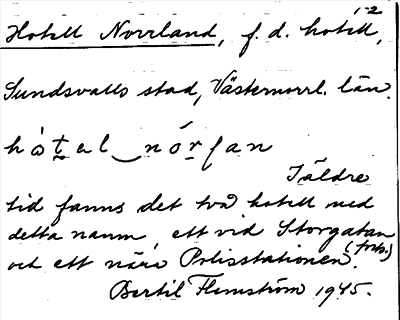 Hotell Norrland, f. d. hotell, 1-2
Sundsvalls stad, Västernorrl. län.
hot̲el‿nór̲lan
I äldre
tid fanns det två hotell med
detta namn, ett vid Storgatan
och ett nära Polisstationen. (forts.)
Bertil Flemström 1945.